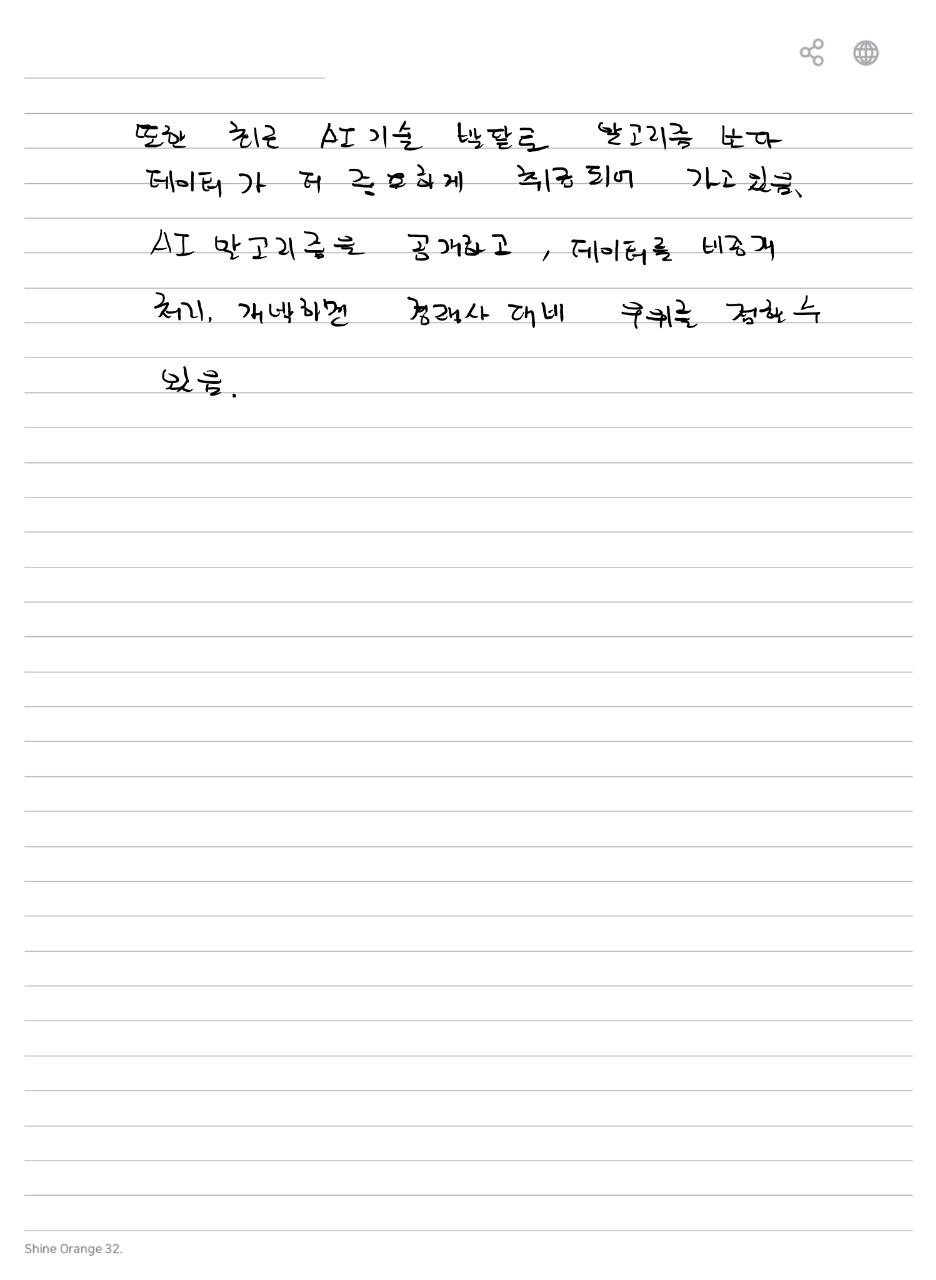 또한 최근 AI 기술 발달로 알고리즘 보다
데이터가 더 중요하게 취급되어 가고 있음.
AI 알고리즘을 공개하고, 데이터를 비공개
처리, 개발하면 경쟁사 대비 우위를 점할 수
있음.
Shine Orange 32.